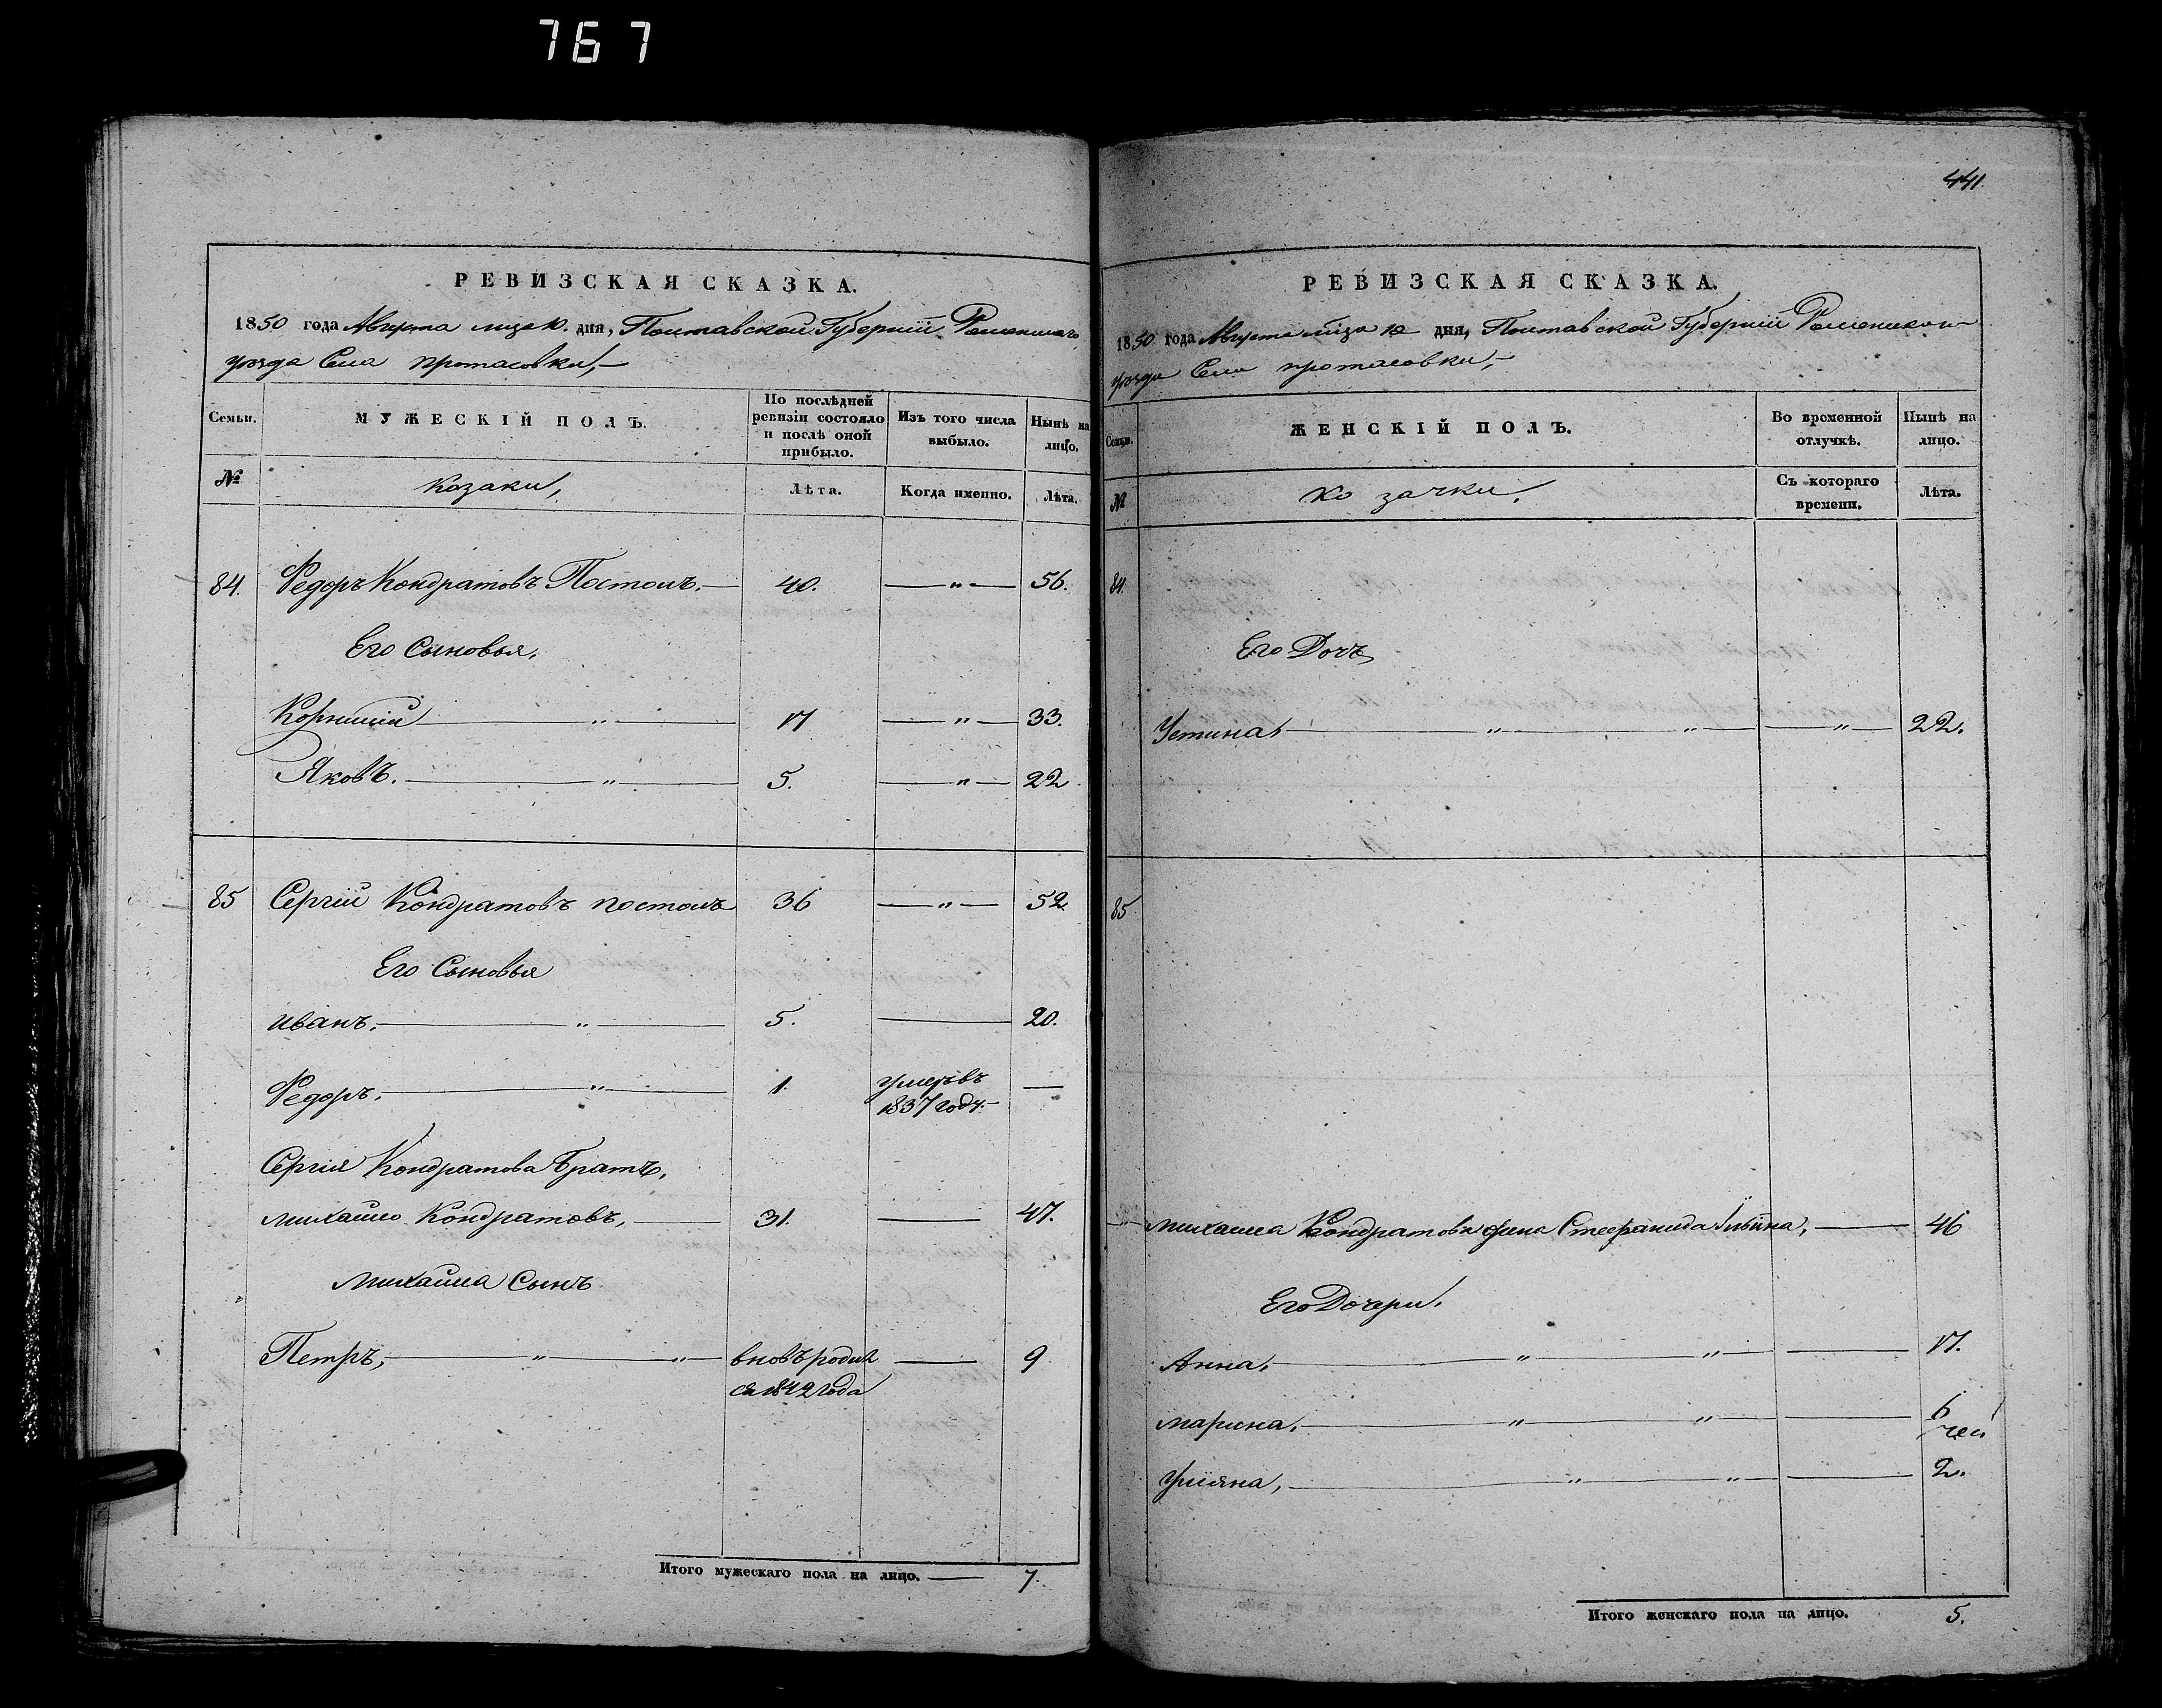 767
РЕВИЗСКАЯ СКАЗКА.
1850 года Августа мца 10. дня, Полтавской Губерніи Роменскаго
уезда Села протасовки,
Семьи.
МУЖЕСКІЙ ПОЛЪ.
По послѣдней ревизіи состояло и послѣ оной прибыло.
Изъ того числа выбыло.
Нынѣ на лицо.
№
козаки,
Лѣта.
Когда именно.
Лѣта.
84. Федоръ Кондратовъ Постолъ. — 40. — „ — 56.
Его Сыновья.
Корнилій — „ — 17 — „ — 33.
Яковъ. — „ — 5. — „ — 22
85 Сергій Кондратовъ постолъ 36 — „ — 52
Его Сыновья
иванъ. — „ — 5. — 20.
Федоръ. — „ — 1. умеръ въ —
1837 году.
Сергія Кондратова Братъ,
михайло Кондратовъ, — 31. — 47.
михайла Сынъ
Петръ, — „ — „ — вновъ родил — 9
ся 1842 года
Итого мужескаго пола на лицо. — 7.
441.
РЕВИЗСКАЯ СКАЗКА.
1850 года Августа мца 10 дня, Полтавской Губерніи Роменскаго
уезда Села протасовки,
Семьи.
ЖЕНСКІЙ ПОЛЪ.
Во временной отлучкѣ.
Нынѣ на лицо.
№
козачки,
Съ котораго времени.
Лѣта.
84.
Его Дочъ
Устина — „ — „ — „ — 22.
85
— „ — михайла Кондратова жена Стефанида Ильина, — 46
Его Дочери.
Анна. — „ — „ — 17.
марина. — „ — „ — 6
Улiяна, — „ — „ — 2.
Итого женскаго пола на лицо. 5.